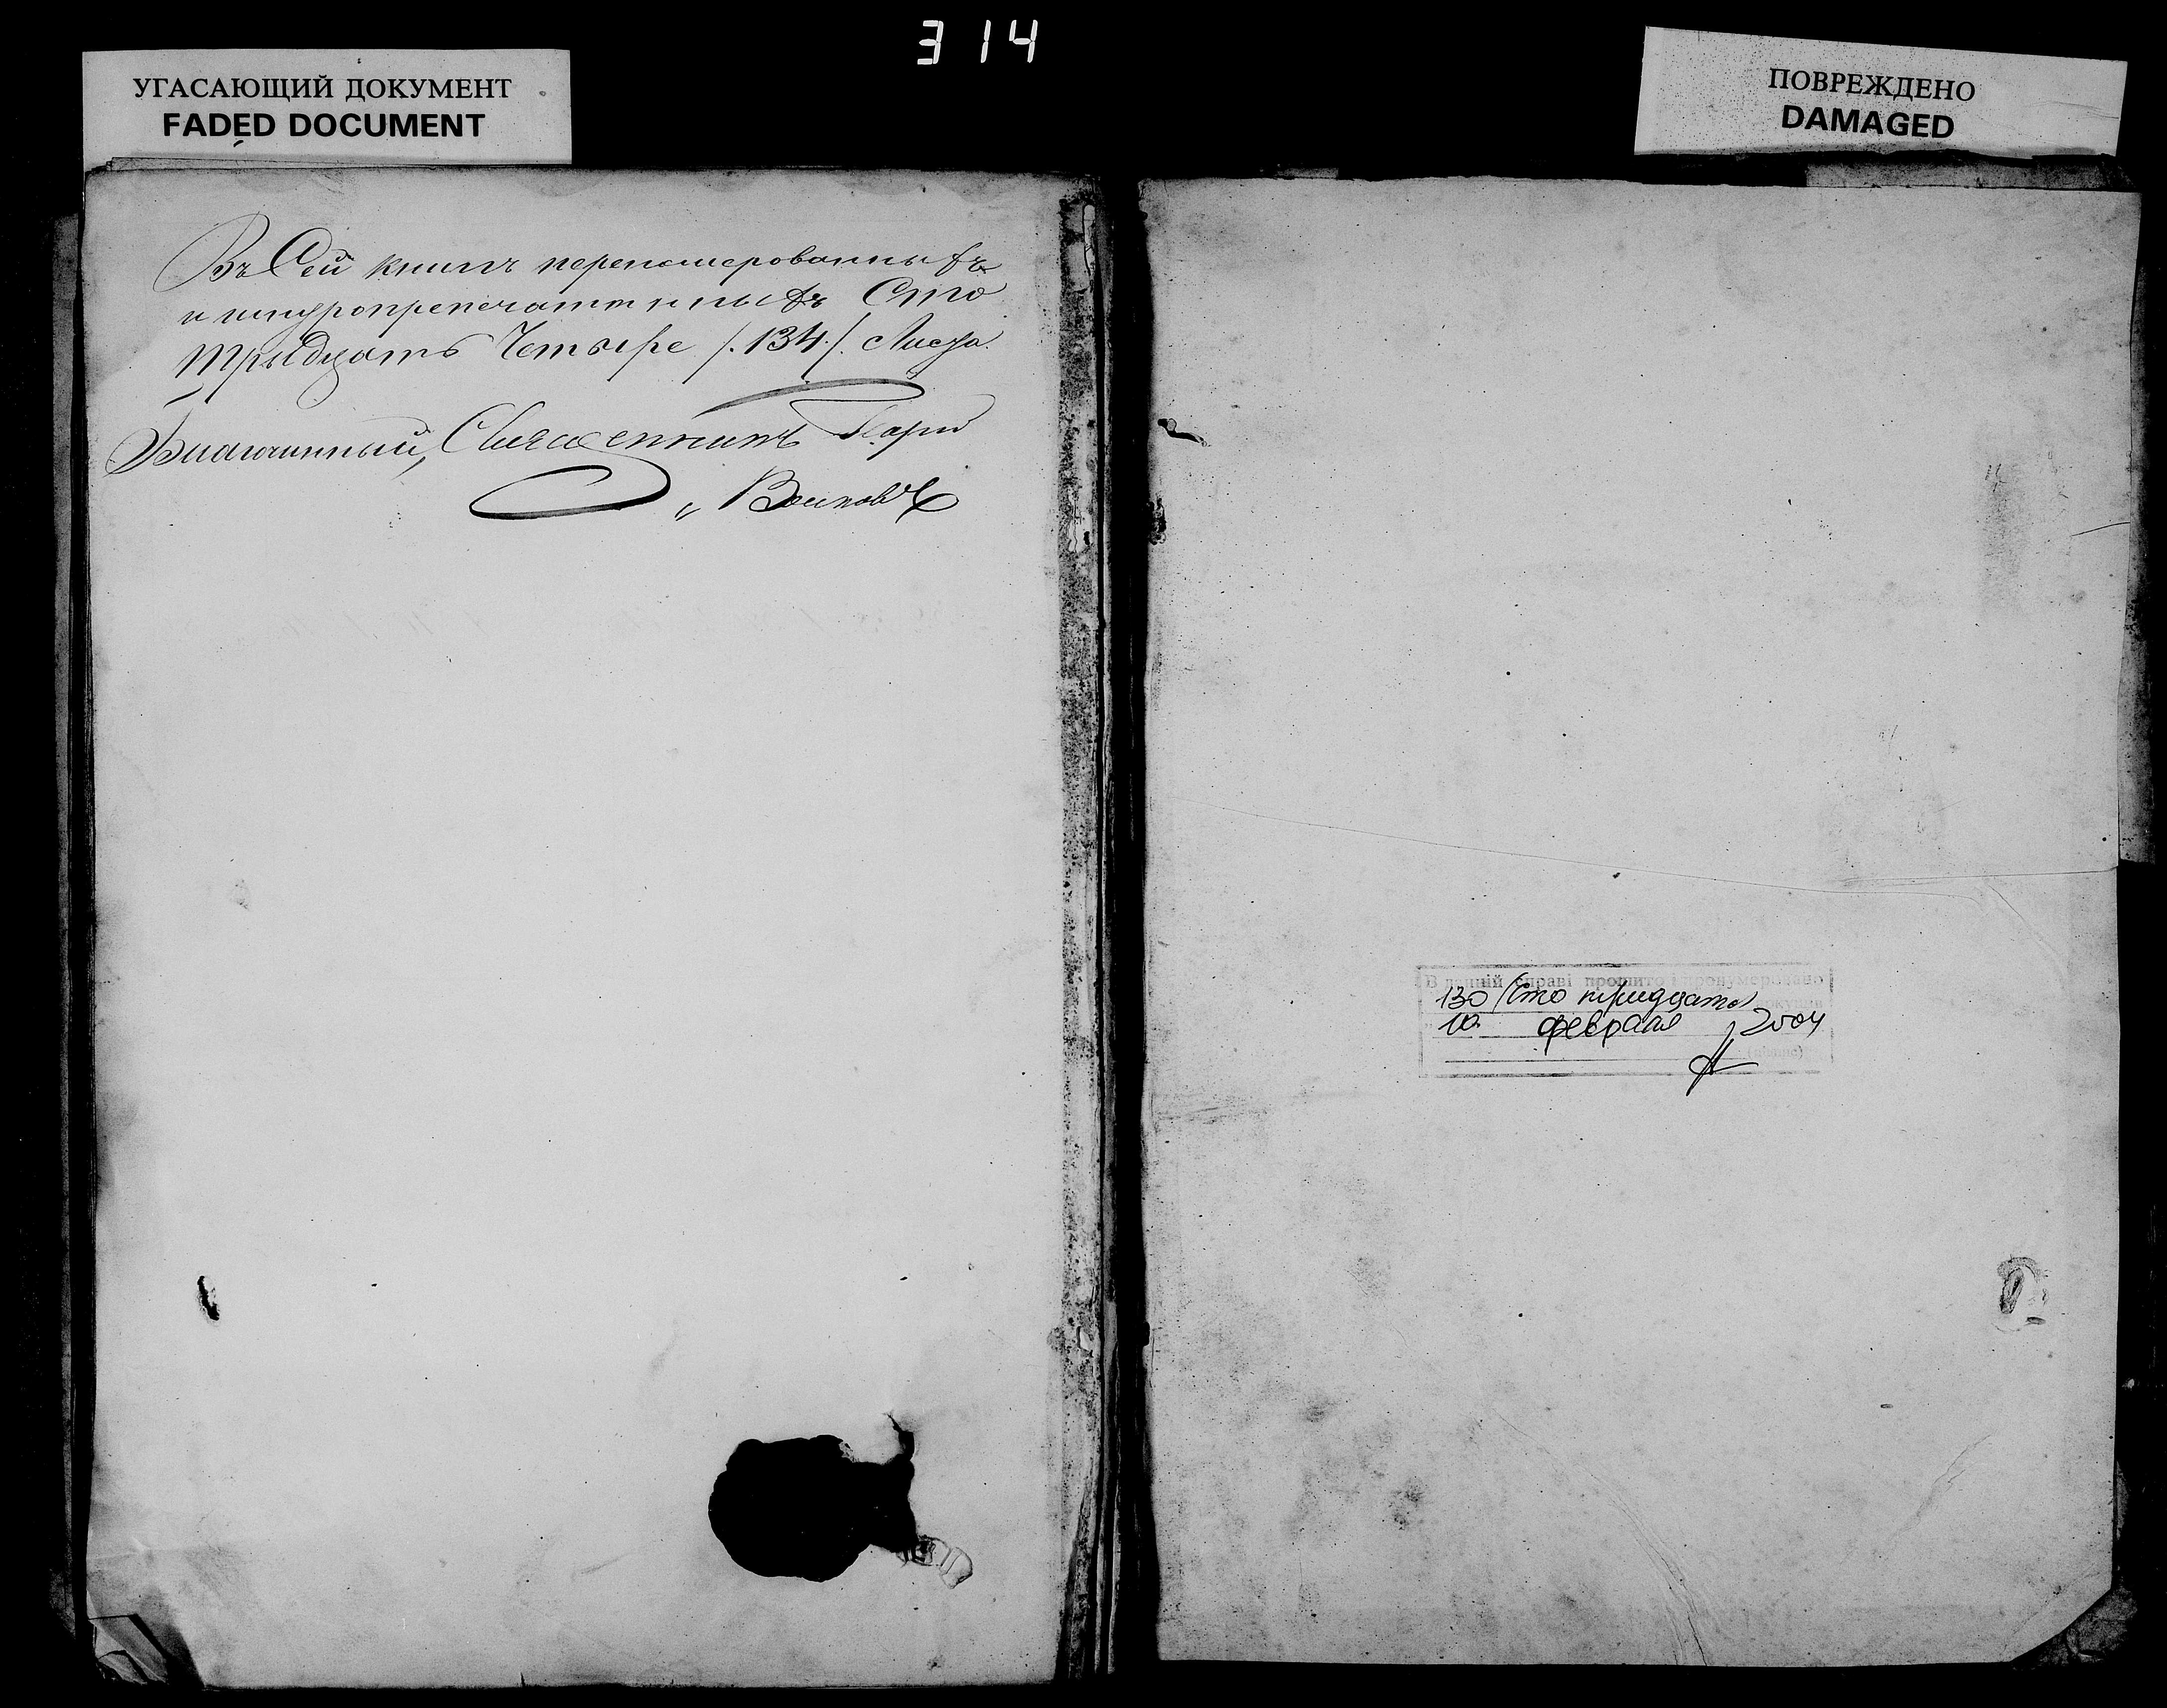 314
УГАСАЮЩИЙ ДОКУМЕНТ
FADED DOCUMENT
ПОВРЕЖДЕНО
DAMAGED
Въ Сей книгѣ перенумерованныхъ
и шнуропрепечатанныхъ Сто
тридцать Четыре /.134./. Листа.
Благочинный, Священникъ
В данній справі прошито і пронумеровано
130 (сто тридцать)
10 февраля 2004